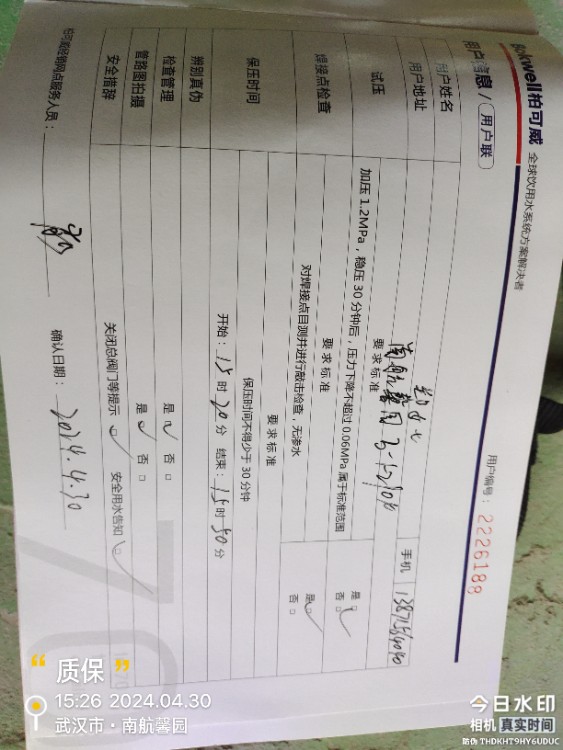 Bokwell柏可威 全球饮用水系统方案解决者
用户信息 / 用户联
用户编号: 2226188
用户姓名 手机
用户地址 南航馨园
试压
要求标准
加压1.2MPa,稳压30分钟后,压力下降不超过0.06MPa属于标准范围
是☑ 否□
焊接点检查
要求标准
对焊接点目测并进行敲击检查,无渗水
是☑ 否□
保压时间
要求标准
保压时间不得少于30分钟
开始:15时20分 结束:15时50分
辨别真伪
检查管理 是☑ 否□
管路图拍摄 是☑ 否□
安全措辞 关闭总阀门等提示☑ 安全用水告知☑
柏可威经销网点服务人员:
确认日期:2024.4.30
“质保”
15:26 2024.04.30
武汉市·南航馨园
今日水印
相机 真实时间
防伪 THDKHT9HY6UDUC